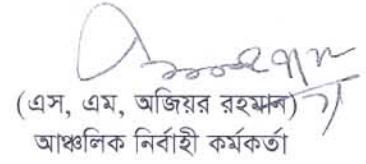 (এস, এম, অজিয়র রহমান)
আঞ্চলিক নির্বাহী কর্মকর্তা